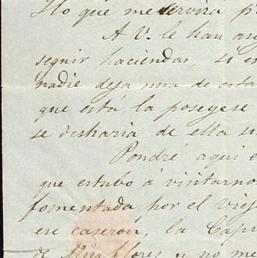 Ylo que me servira p
A V. le han as
seguir haciendas, si e
nadie deja una de esta
que esta, la poseyese
se desharia de ella si
Pondré aqui e
que estubo á visitarno
fomentada por el Ures
ese caseron, la Capi
de Miraflores y no me